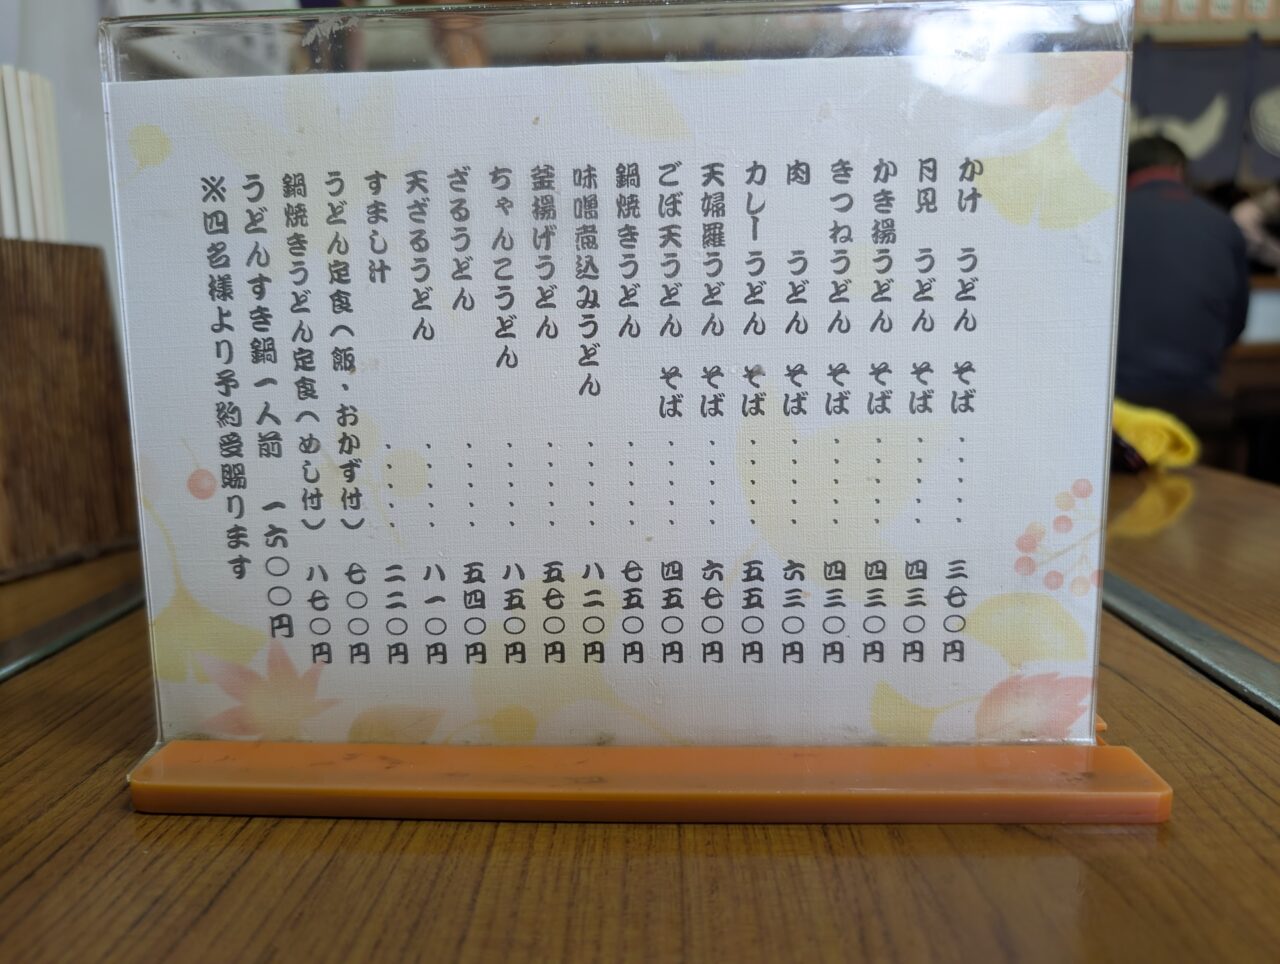 かけ うどん そば・・・・・三七〇円
月見 うどん そば・・・・・四三〇円
かき揚うどん そば・・・・・四三〇円
きつねうどん そば・・・・・四三〇円
肉 うどん そば・・・・・六三〇円
カレーうどん そば・・・・・五五〇円
天婦羅うどん そば・・・・・六七〇円
ごぼ天うどん そば・・・・・四五〇円
鍋焼きうどん・・・・・七五〇円
味噌煮込みうどん・・・・・八二〇円
釜揚げうどん・・・・・五七〇円
ちゃんこうどん・・・・・八五〇円
ざるうどん・・・・・五四〇円
天ざるうどん・・・・・八一〇円
すまし汁・・・・・二二〇円
うどん定食(飯・おかず付)七〇〇円
鍋焼きうどん定食(めし付)八七〇円
うどんすき鍋一人前 一六〇〇円
※四名様より予約受賜ります